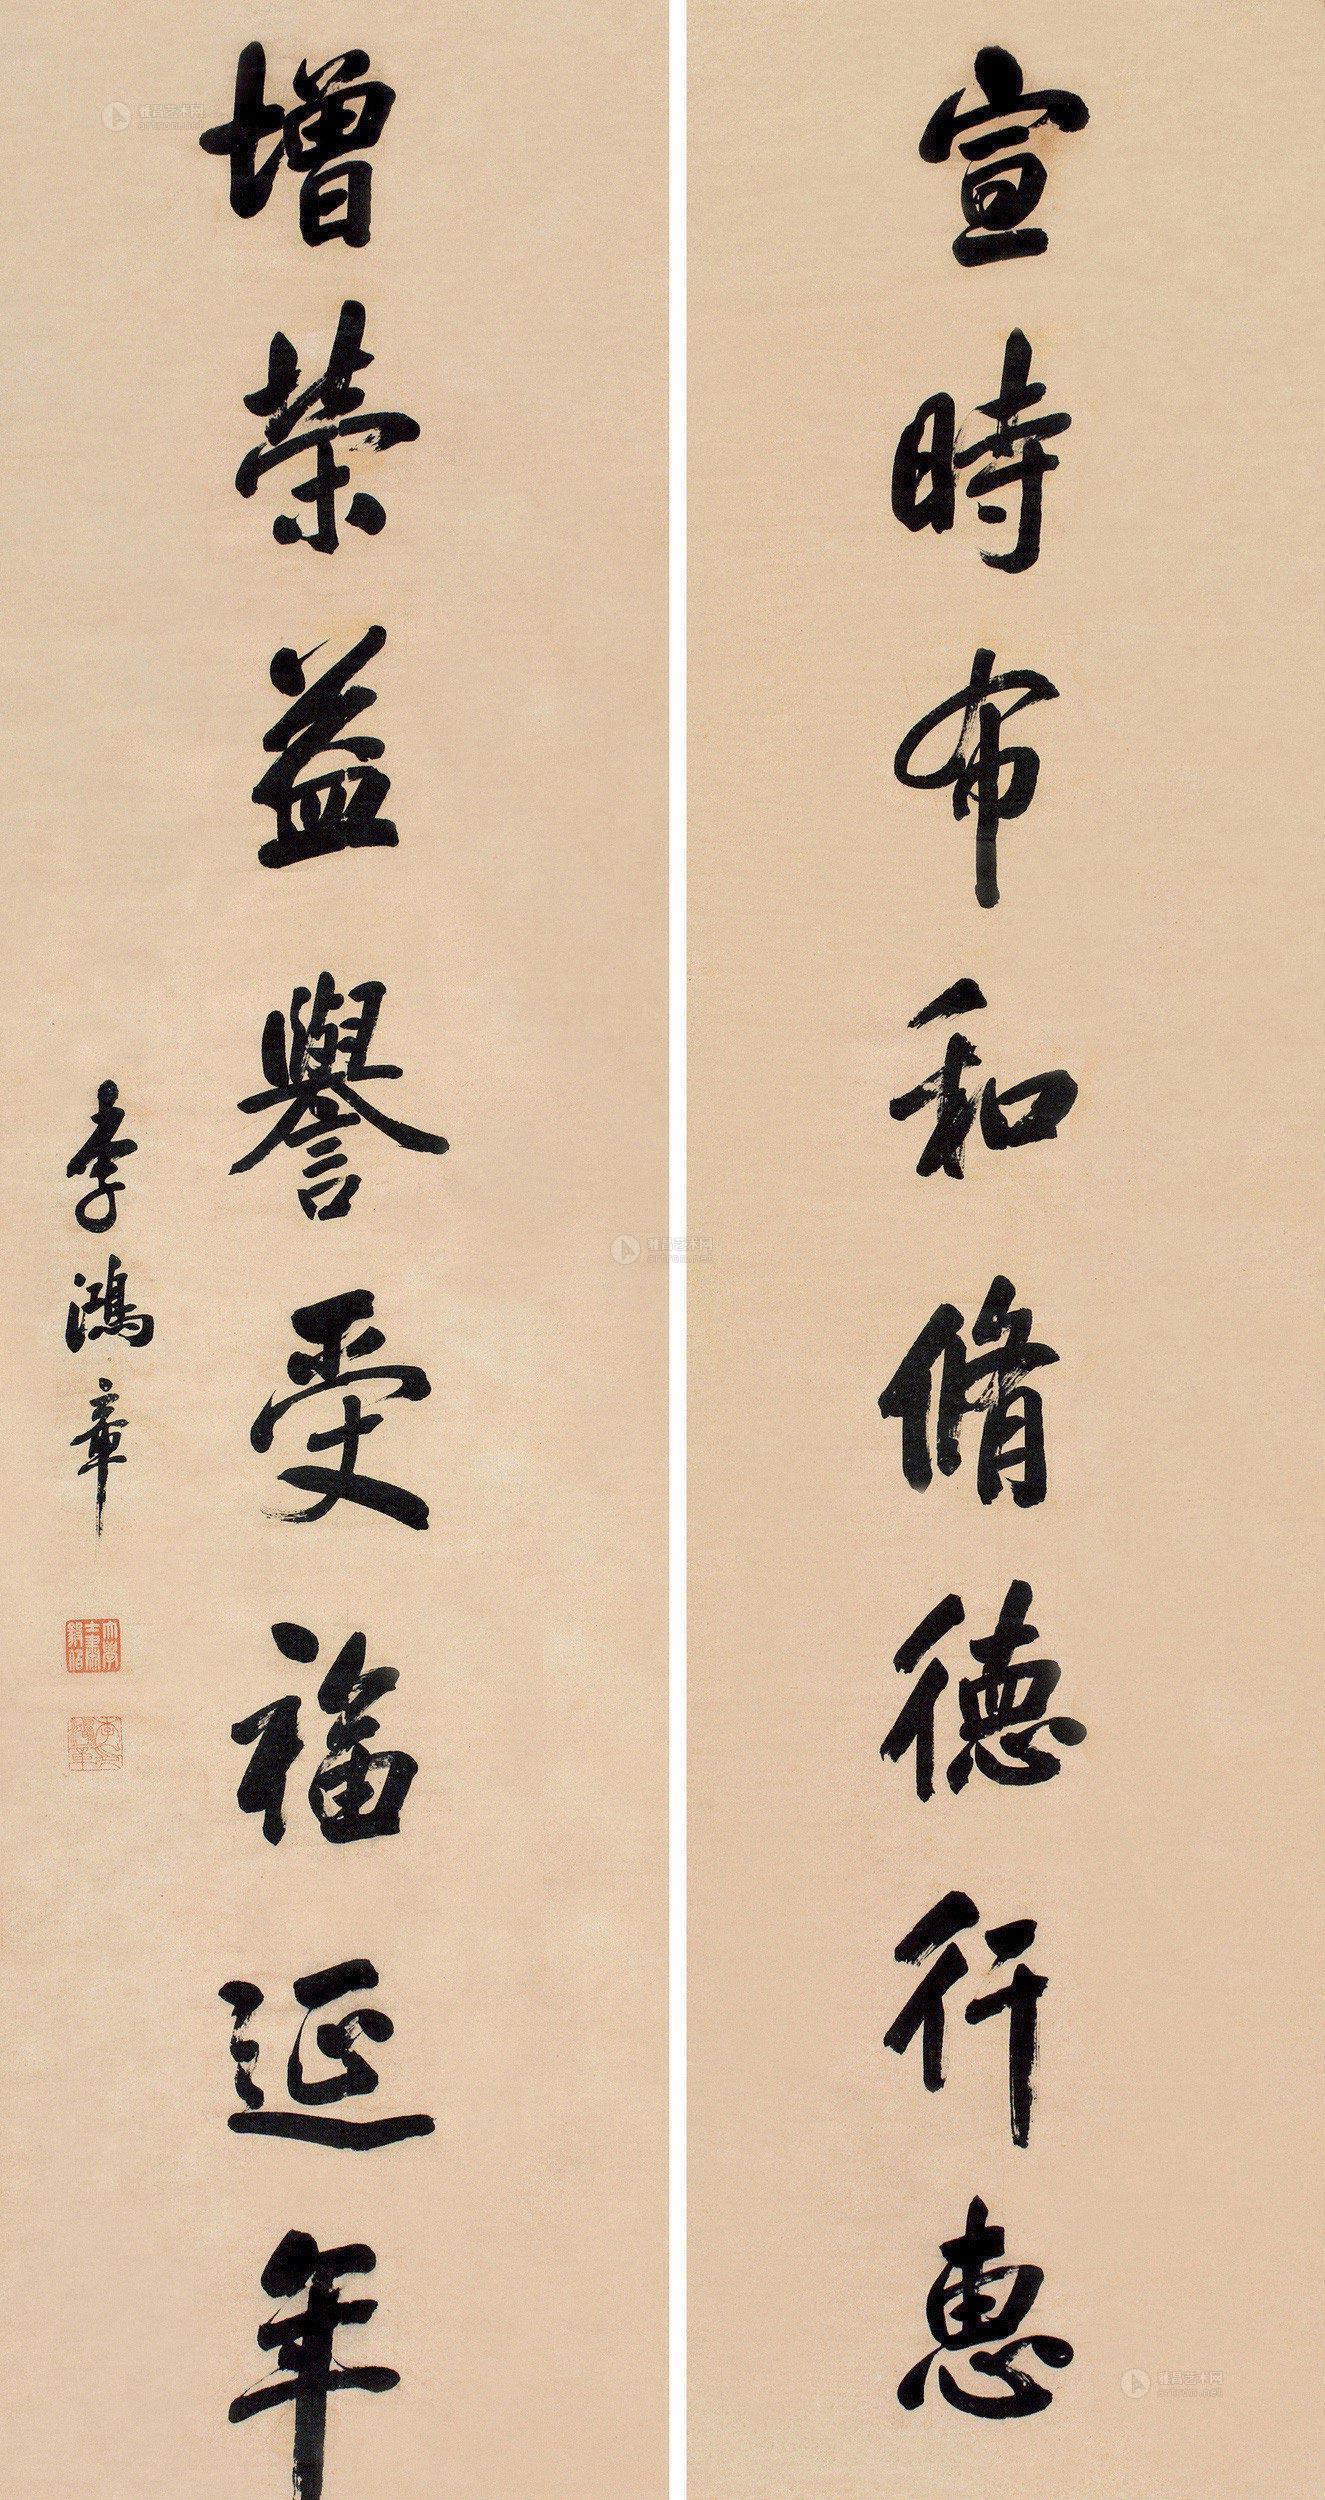 宣時布和脩德行惠
增榮益譽受福延年
李鴻章
雅昌艺术网
artron.net
雅昌艺术网
artron.net
雅昌艺术网
artron.net